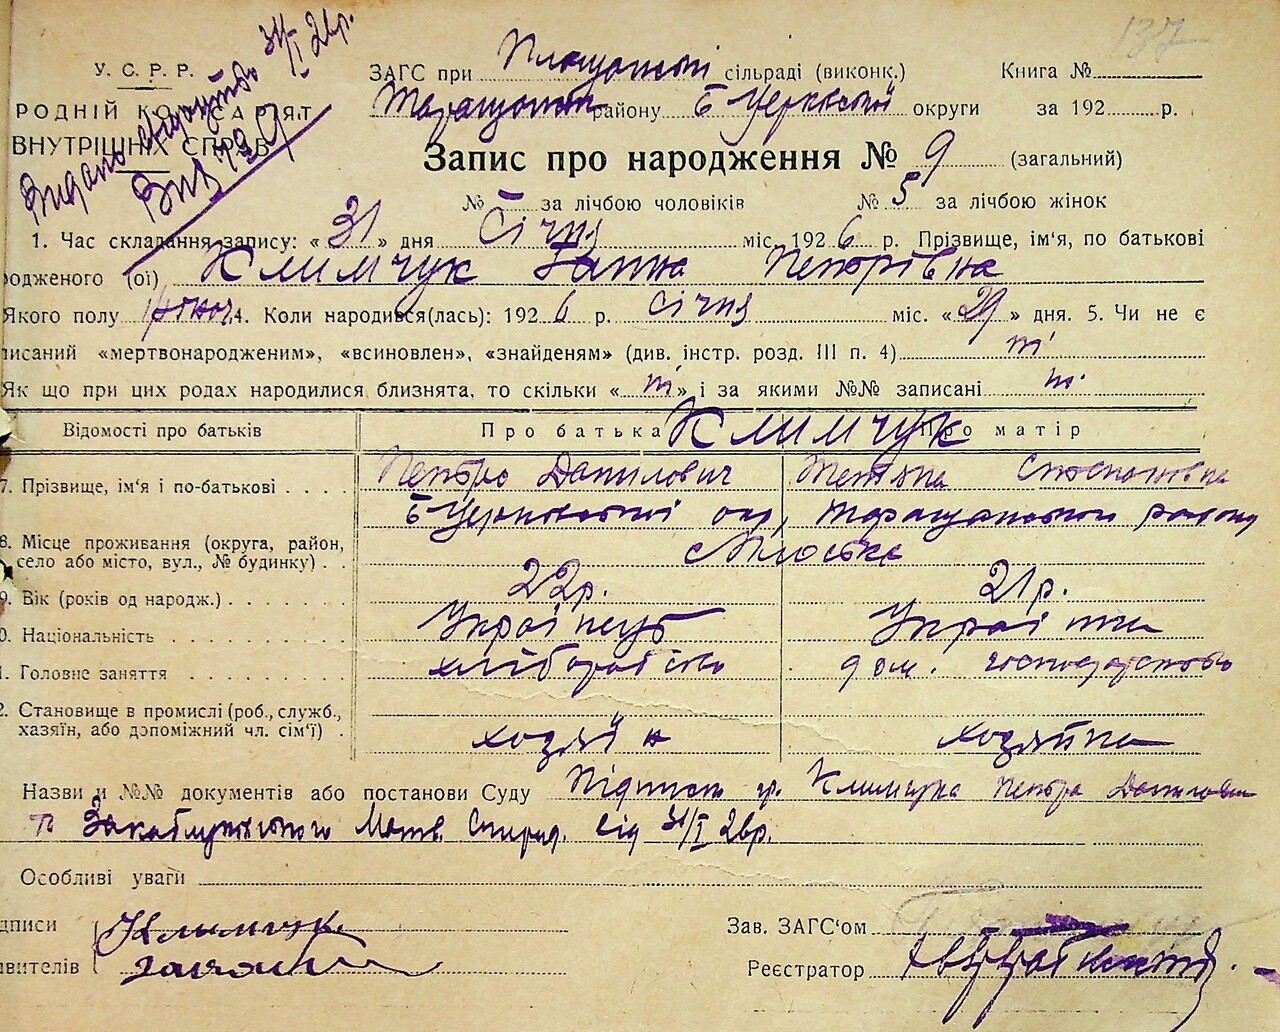 137
У. С. Р. Р.
РОДНІЙ КОМІСАРІЯТ
ВНУТРІШНІХ СПРАВ
Видано 31/I 26р.
ЗАГС при Площанській сільраді (виконк.) Книга №
Таращанськ району Б Церківської округи за 192 р.
Запис про народження № 9 (загальний)
№ – за лічбою чоловіків № 5 за лічбою жінок
1. Час складання запису: « 31 » дня Січня міс. 192 6 р. Прізвище, ім'я, по батькові
родженого (ої) Климчук Ганна Петрівна
Якого полу жіноч. 4. Коли народився(лась): 192 6 р. січня міс. « 29 » дня. 5. Чи не є
писаний «мертвонародженим», «всиновлен», «знайденям» (див. інстр. розд. III п. 4) ні
Як що при цих родах народилися близнята, то скільки « ні » і за якими №№ записані ні
Відомості про батьків Про батька Климчук Про матір
7. Прізвище, ім'я і по-батькові Петро Данилович Тетяна Степановна
Б Церковської окр, Таращанського району
8. Місце проживання (округа, район,
село або місто, вул., № будинку) с Плоске
9. Вік (років од народж.) 22р. 21р.
0. Національність Українець Українка
1. Головне заняття хліборобство дом. господарство
2. Становище в промислі (роб., служб.,
хазяїн, або допоміжний чл. сім'ї) хозяїн хозяйка
Назви и №№ документів або постанови Суду Підписи гр. Климчука Петра Данилови
та Закаблуковського Матв. Спирид. від 31/I 26р.
Особливі уваги
дписи Климчук
явителів
Зав. ЗАГС'ом
Реєстратор